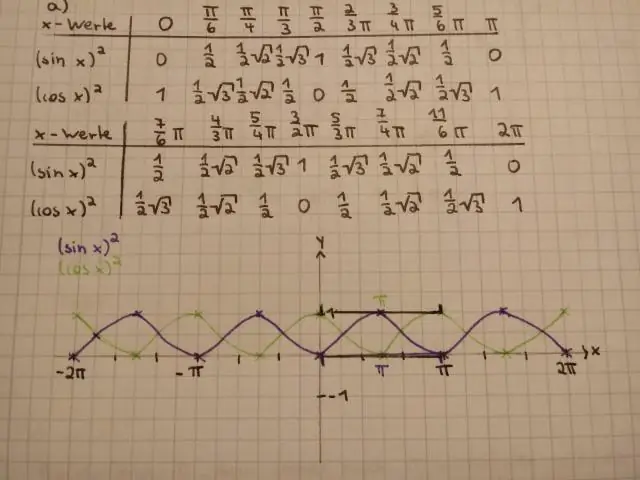 a)
x-Werte 0 π/6 π/4 π/3 π/2 2/3 π 3/4 π 5/6 π π
(sin x)² 0 1/2 1/2√2 1/2√3 1 1/2√3 1/2√2 1/2 0
(cos x)² 1 1/2√3 1/2√2 1/2 0 1/2 1/2√2 1/2√3 1
x-Werte 7/6 π 4/3 π 5/4 π 3/2 π 5/3 π 7/4 π 11/6 π 2π
(sin x)² 1/2 1/2√2 1/2√3 1 1/2√3 1/2√2 1/2 0
(cos x)² 1/2√3 1/2√2 1/2 0 1/2 1/2√2 1/2√3 1
(sin x)²
(cos x)²
y
π
1
x
-2π -π π π 2π
-1